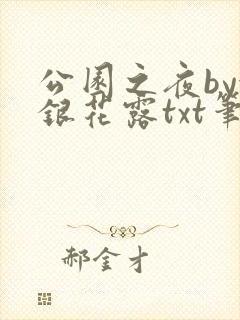 公园之夜by
銀花露txt筆
郝金才